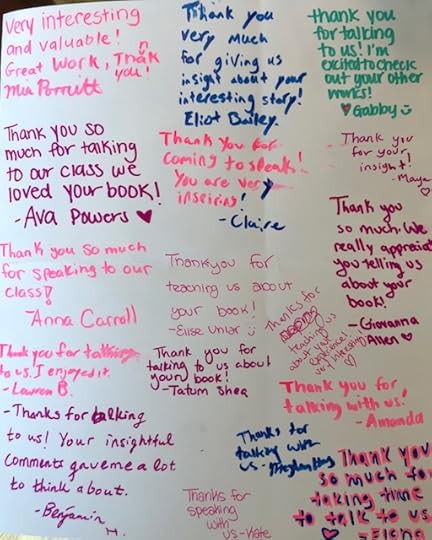 very interesting
and valuable!
Great work, Thank
you!
Mia Porritt
Thank you
very much
for giving us
insight about your
interesting story!
Eliot Bailey
thank you
for talking
to us! I'm
excited to check
out your other
works!
Gabby
Thank you so
much for talking
to our class we
loved your book!
- Ava Powers
Thank you for
coming to speak!
You are very
inspiring!
- Claire
Thank you
for your
insight!
- Maya
Thank you
so much. We
really appreciate
you telling us
about your
book!
- Giovanna
Allen
Thank you so much
for speaking to our
class!
- Anna Carroll
Thankyou for
teaching us about
your book!
- Elise
Thanks for
teaching us
about your
experience!
very interesting
Thank you for talking
to us. I enjoyed it.
- Lauren B.
Thank you for
talking to us about
your book!
- Tatum Shea
Thank you for
talking with us!
- Amanda
- Thanks for talking
to us! Your insightful
comments gave me a lot
to think about.
- Benjamin H.
Thanks for
talking with
us -
Thanks for
speaking
with
us - Kate
Thank you
so much for
taking time
to talk to us